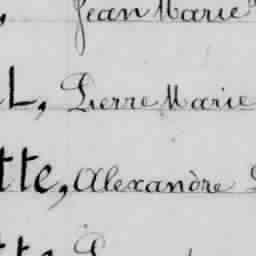 , Jean Marie
L, Pierre Marie
tte, Alexandre